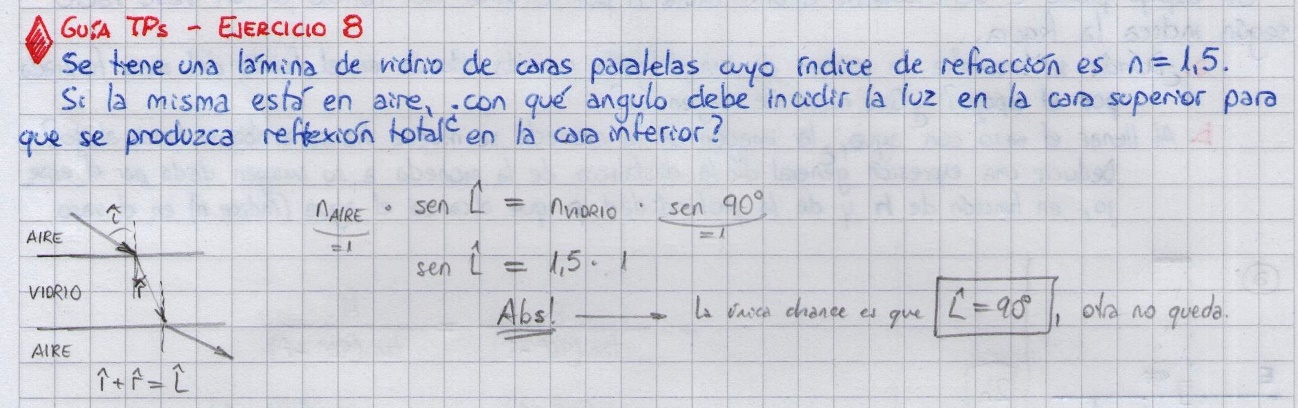 GUÍA TPs - EJERCICIO 8
Se tiene una lámina de vidrio de caras paralelas cuyo índice de refracción es n = 1,5.
Si la misma está en aire, ¿con qué angulo debe incidir la luz en la cara superior para
que se produzca reflexión total en la cara inferior?
n AIRE · sen L̂ = n VIDRIO · sen 90°
=1 =1
sen L̂ = 1,5 · 1
Abs! → la única chance es que L̂ = 90°, otra no queda.
î
AIRE
VIDRIO r̂
AIRE
î + r̂ = L̂